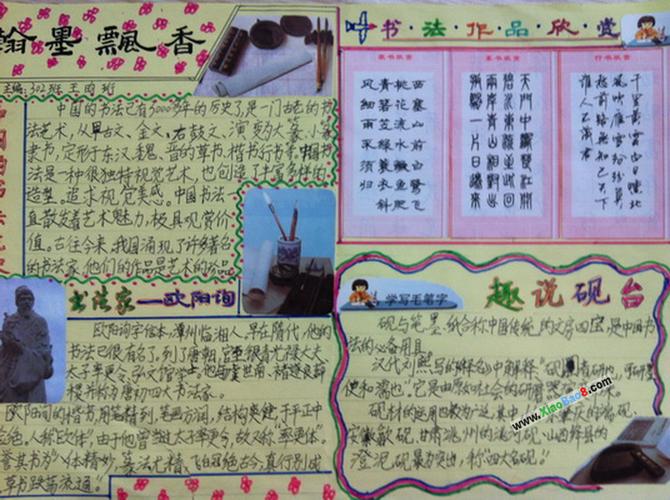 翰墨飘香
主编:302班 王
中国的书法已有5000多年的历史了,是一门古老的书
法艺术,从甲古文、金文、石鼓文、演变为大篆、小篆
隶书,定形于东汉、魏、晋的草书、楷书行书等,中国书
法是一种很独特视觉艺术,也创造了丰富多样的
造型。追求视觉美感。中国书法一
直散发着艺术魅力,极具观赏价
值。古往今来,我国涌现了许多著名
的书法家,他们的作品是艺术的珍品
书法家——欧阳询
欧阳询字信本,潭州临湘人,早在隋代,他的
书法已很有名了,到了唐朝,官至银青光禄大夫
太子率更令,弘文馆学士,他与虞世南、褚遂良薛
稷并称为唐初四大书法家。
欧阳询的楷书用笔精到,笔画方润,结构爽健于平正中
险绝,人称"欧体"。由于他曾当太子率更令,故又称"率更体"。
誉其书为"八体精妙,篆法尤精,飞白冠绝古今,真行别成
草书跌荡流通。"
书·法·作·品·欣·赏
隶书欣赏
篆书欣赏
行书欣赏
西塞山前白鹭飞
桃花流水鳜鱼肥
青箬笠绿蓑衣斜
风细雨不须归
天门中断楚江开
碧水东流至此回
两岸青山相对出
孤帆一片日边来
千里黄云白日曛北
风吹雁雪纷纷莫
愁前路无知己天下
谁人不识君
学写毛笔字
趣说砚台
砚与笔、墨、纸合称中国传统的文房四宝,是中国书
法的必备用具
汉代刘熙写的《释名》中解释"砚者研也,可研墨
使和濡也"。它是由原始社会的研磨
砚材的运用也极为广泛,其中
安徽歙砚、甘肃洮州的洮河砚、山西绛县的
澄泥砚最为突出,称"四大名砚"。
www.XiaoBao8.com